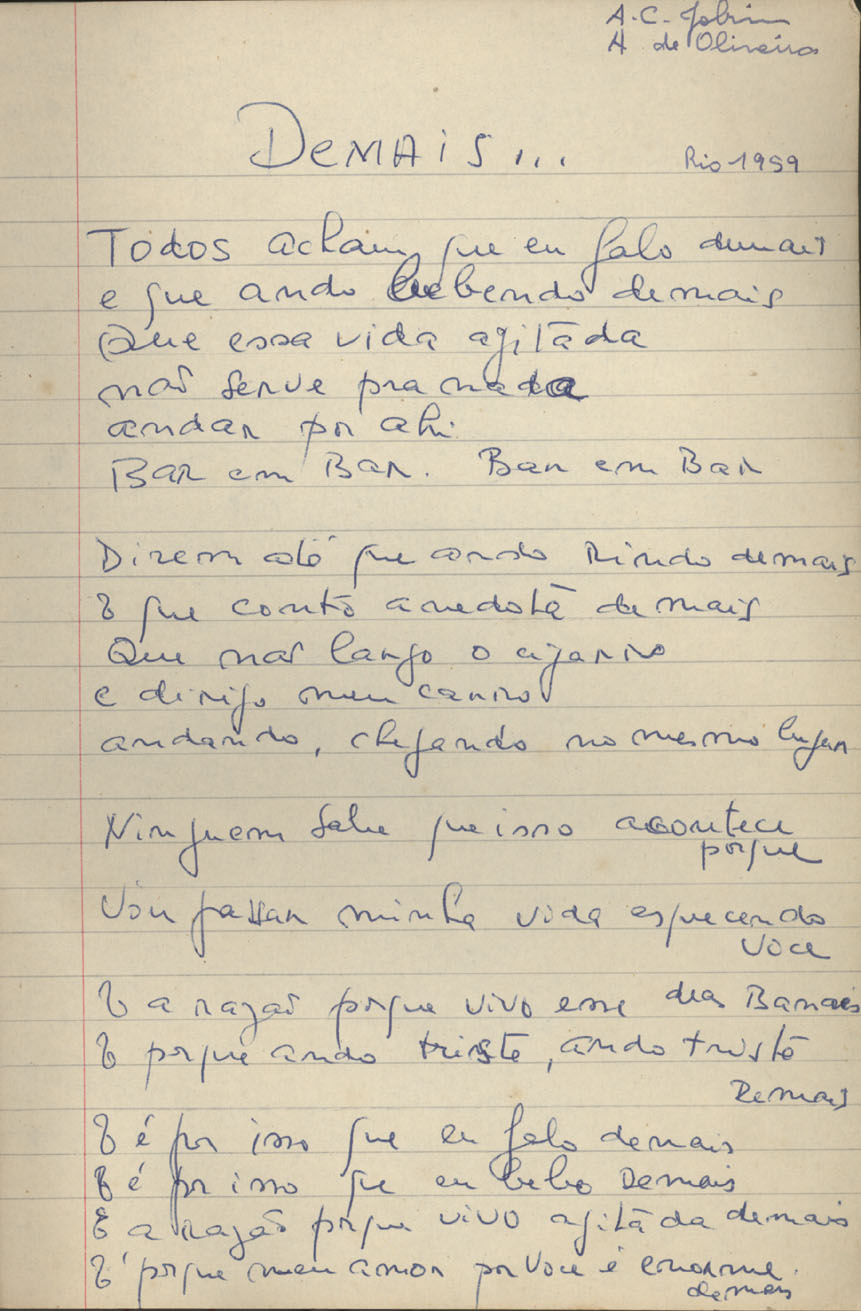 A.C. Jobim
A de Oliveira
DEMAIS...
Rio 1959
Todos acham que eu falo demais
e que ando bebendo demais
Que essa vida agitada
não serve pra nada
andar por ahi
Bar em Bar. Bar em Bar
Dizem até que ando Rindo demais
E que conto anedota demais
Que não largo o cigarro
e dirijo meu carro
andando, chegando no mesmo lugar
Ninguem sabe que isso acontece
porque
Vou passar minha vida esquecendo
voce
E a razão porque vivo esse dias Banais
E porque ando triste, ando triste
Demais
E é por isso que eu falo demais
E é por isso que eu bebo Demais
E a razão porque vivo agitada demais
E' porque meu amor por voce é enorme
demais